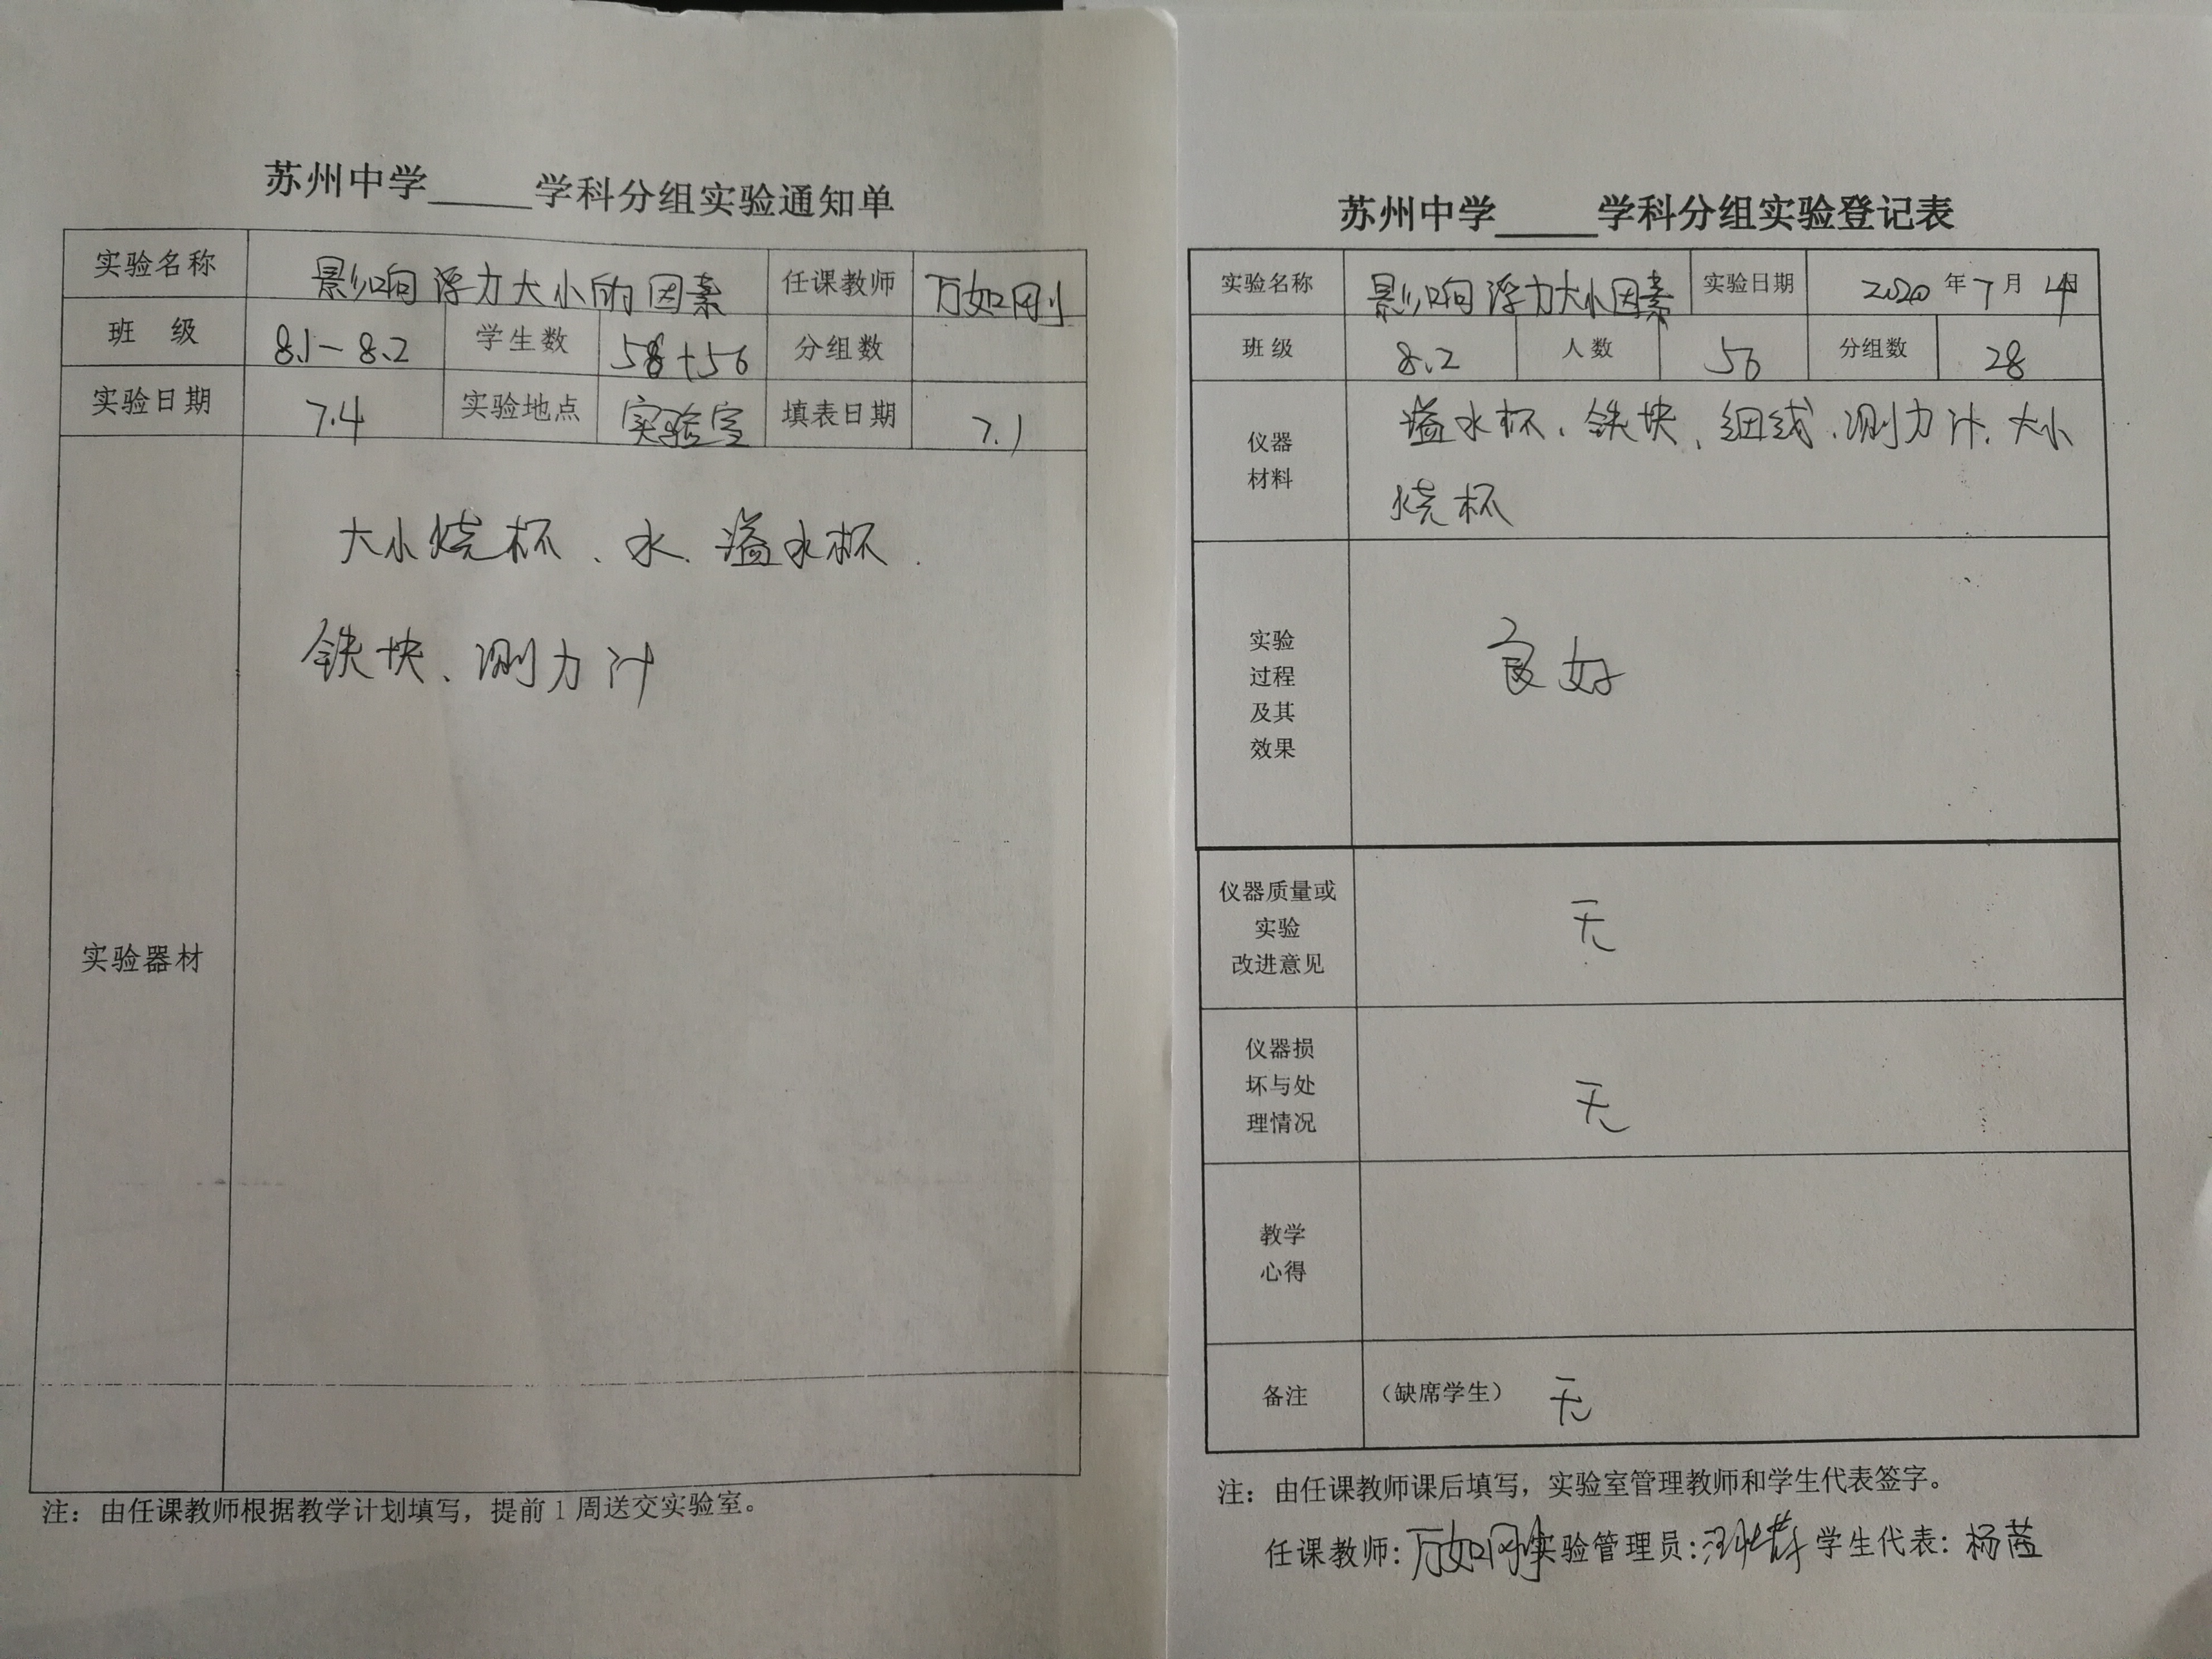 苏州中学_____学科分组实验通知单
实验名称 影响浮力大小的因素 任课教师 万如刚
班 级 8.1-8.2 学生数 58+56 分组数
实验日期 7.4 实验地点 实验室 填表日期 7.1
实验器材
大小烧杯、水、溢水杯、
铁块、测力计
注：由任课教师根据教学计划填写，提前1周送交实验室。
苏州中学_____学科分组实验登记表
实验名称 影响浮力大小因素 实验日期 2020年7月4日
班级 8.2 人数 56 分组数 28
仪器
材料
溢水杯、铁块、细线、测力计、大小
烧杯
实验
过程
及其
效果
良好
仪器质量或
实验
改进意见
无
仪器损
坏与处
理情况
无
教学
心得
备注 （缺席学生） 无
注：由任课教师课后填写，实验室管理教师和学生代表签字。
任课教师：万如刚 实验管理员： 学生代表：杨茜